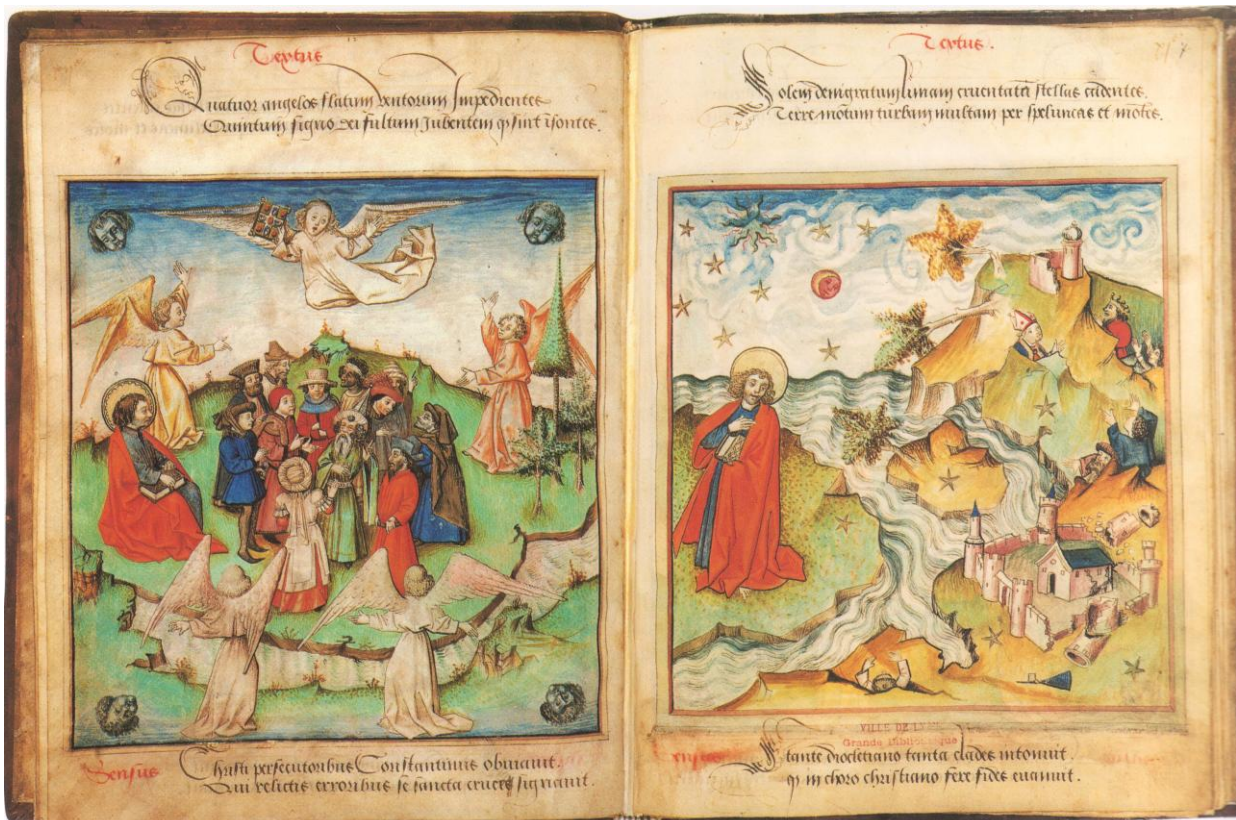 Textus
Quatuor angelos flatum ventorum Impedientes
Quintum signo dei fultum Jubentem qͥ sint isontes.
Sensus
Christi persecutoribus Constantinus obuiauit.
Qui relictis erroribus se sancta cruce signauit.
Textus.
Solem denigratum lunam cruentatā stellas cadentes.
Terre motum turbam multam per speluncas et mōtes.
VILLE DE
Grande Bibliothèque
Sensus
Stante dioclitiano tanta clades intonuit.
qͥ in choro christiano fere fides euanuit.